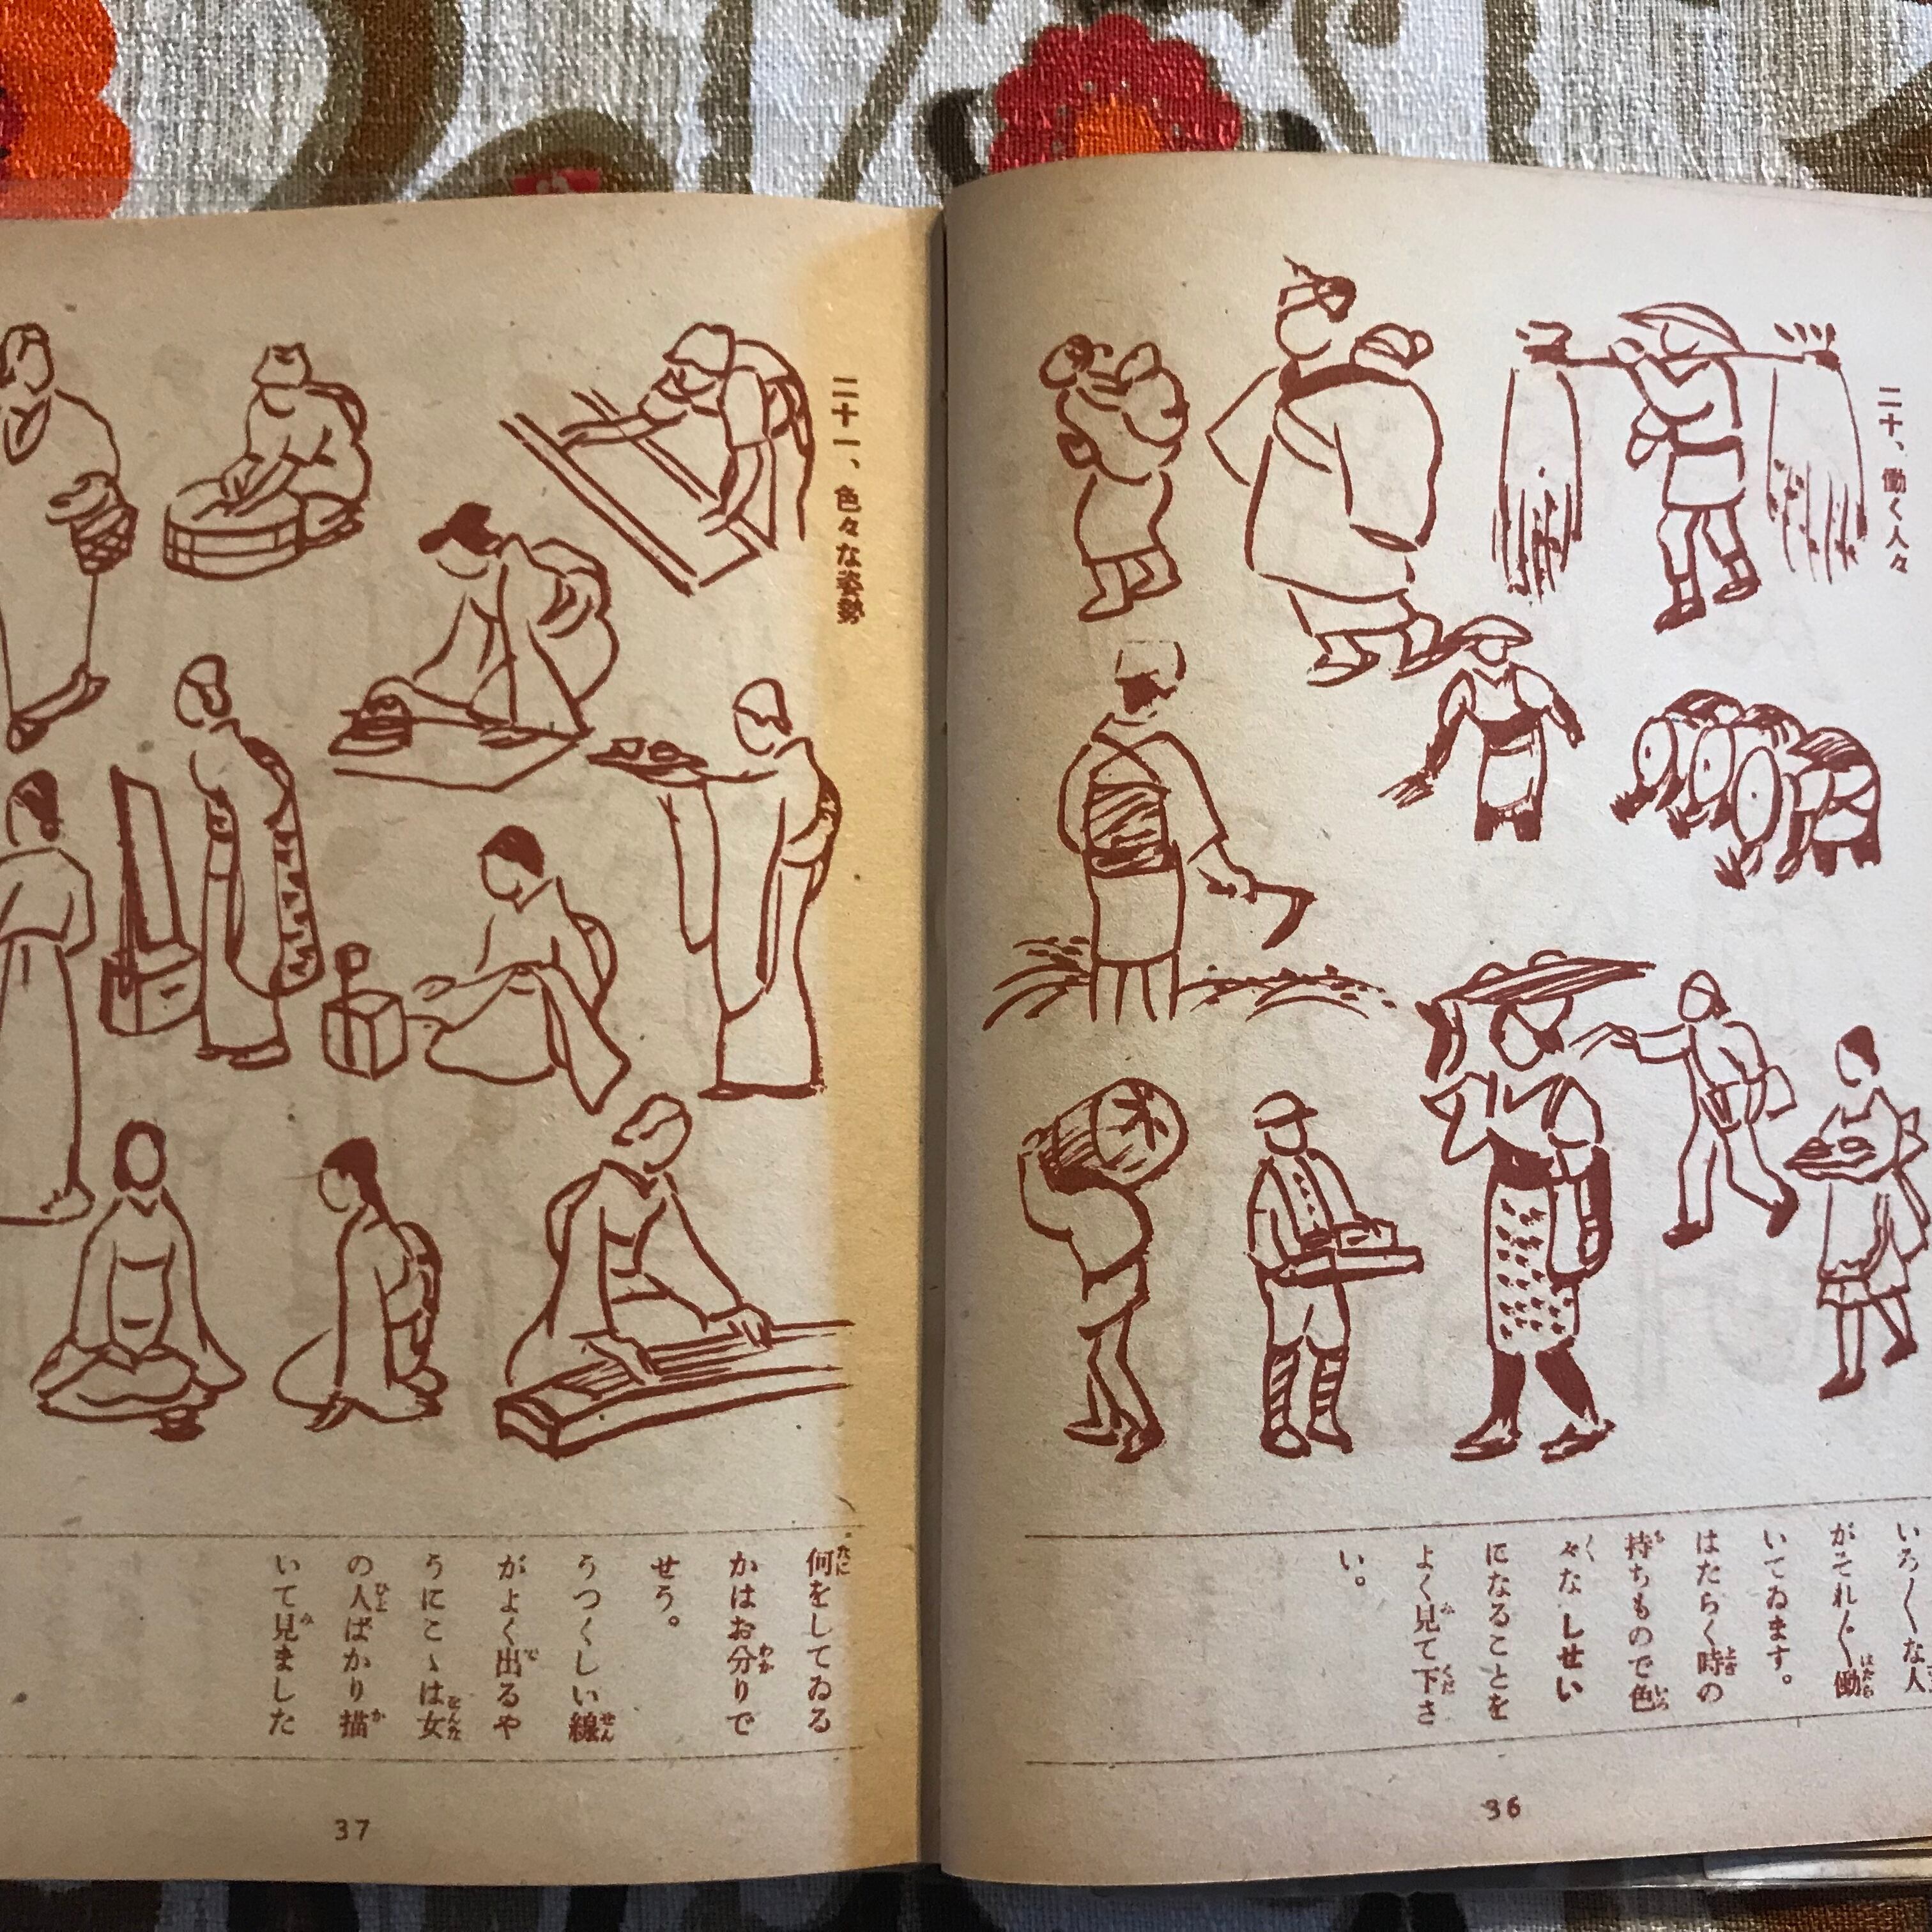 二十、働く人々
いろ〳〵な人
がそれ〴〵働
いてゐます。
はたらく時の
持ちもので色
々なしせい
になることを
よく見て下さ
い。
36
二十一、色々な姿勢
何をしてゐる
かはお分りで
せう。
うつくしい線
がよく出るや
うにこゝは女
の人ばかり描
いて見ました
37